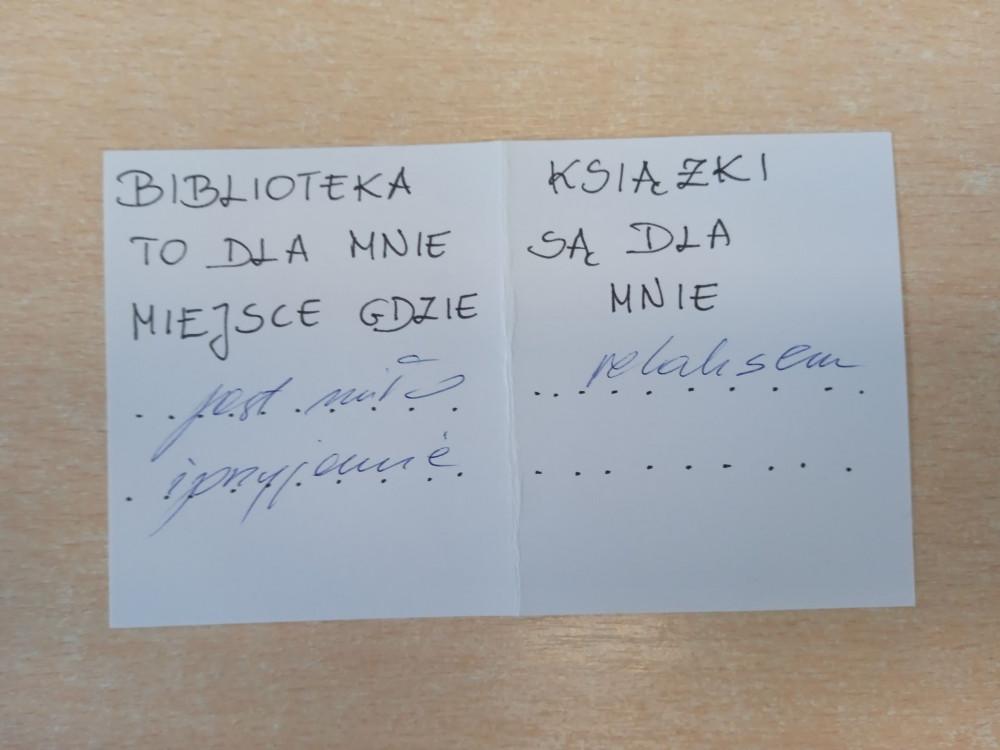 BIBLIOTEKA
TO DLA MNIE
MIEJSCE GDZIE
jest miło
i przyjemnie
KSIĄŻKI
SĄ DLA
MNIE
relaksem